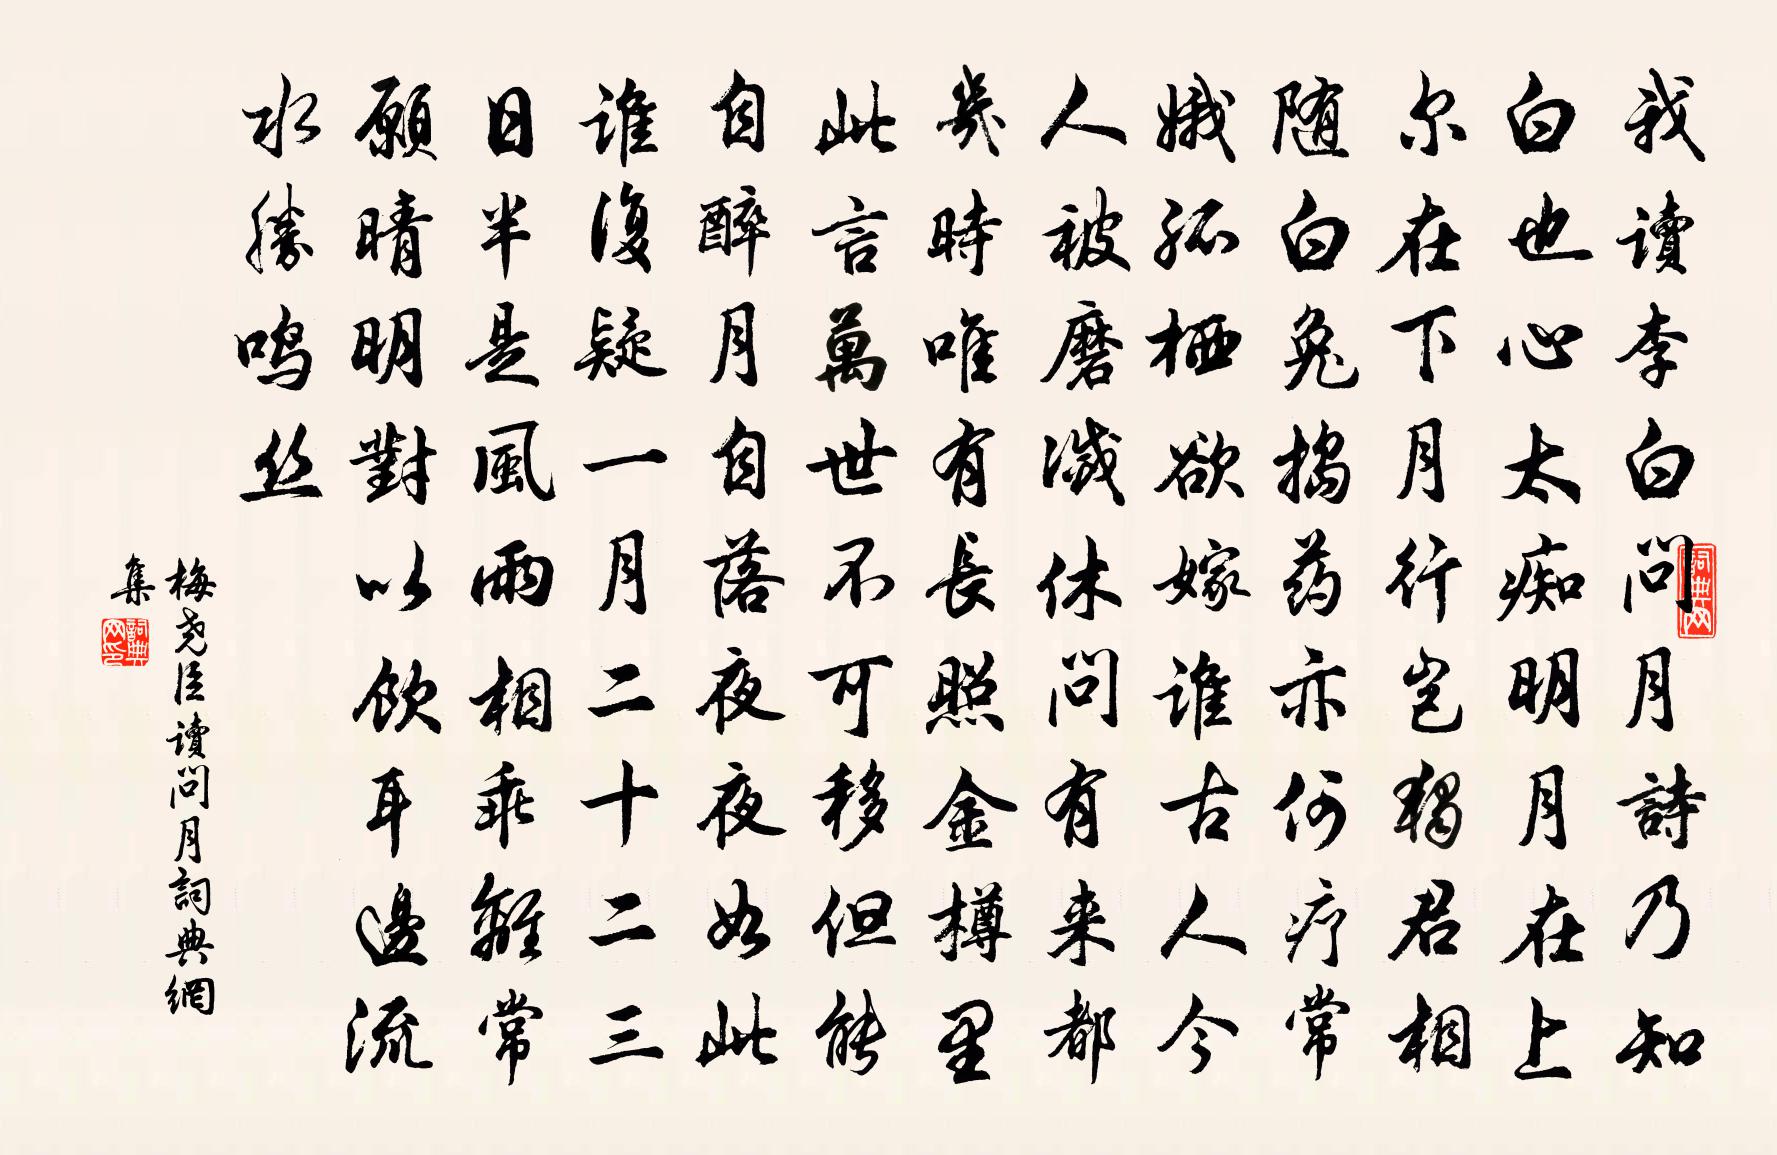 我讀李白問月詩乃知
白也心太痴明月在上
尔在下月行岂獨君相
随白兔搗药亦何疗常
娥孤栖欲嫁誰古人今
人被磨滅休問有来都
幾時唯有長照金樽里
此言萬世不可移但能
自醉月自落夜夜如此
誰復疑一月二十二三
日半是風雨相乖離常
願晴明對以飲耳邊流
水勝鸣丝
梅尧臣讀問月詞典網
集
詞典网
詞典网印